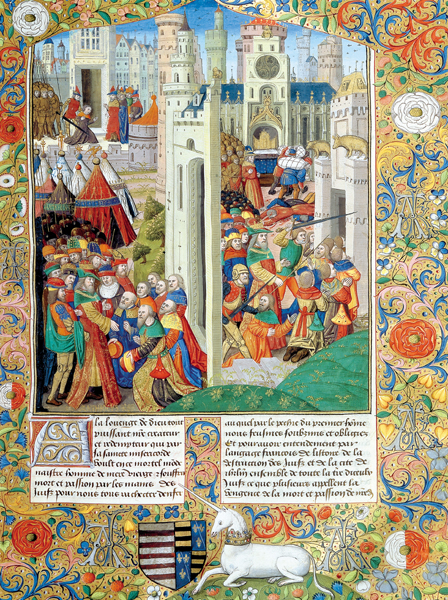 A la louenge de dieu tout
puissant nre createur
et redempteur qui par
sa saincte misericorde
voult estre mortel
homme de mere vierge z souffrir
mort et passion par les mains des
Juifz pour nous tous rachetter denfer
auquel par le pechie du premier home
nous feusmes et obligies
Et pour auoir entendement par
languaige francois de listoire de la
destruction des Juifz et de la cite de
ihrlm ensemble de toute la tre diceulx
Juifz et que plusieurs appellent la
vengence de la mort et passion de nre